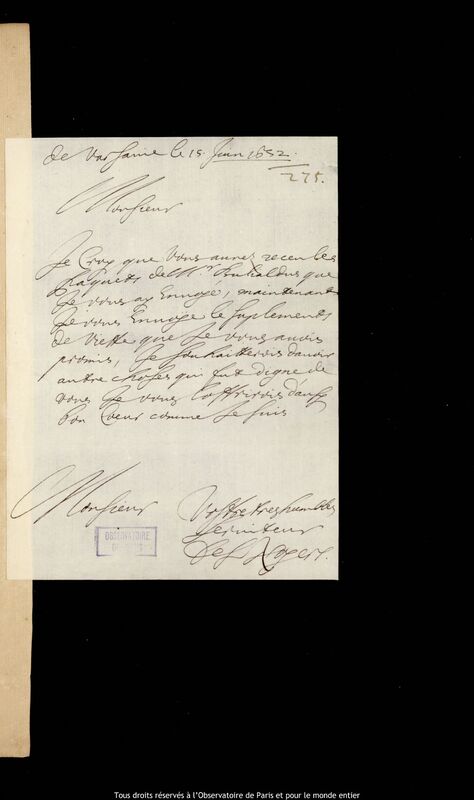 de Varsavie le 15. Juin 1652.
275.
Monsieur
Je Croy que Vous aurez receu les
paquets de Mr. Bulialdus que
Je vous ay Envoyé, maintenant
Je vous Envoye le suplements
de Viette que Je vous avois
promis, Je souhaitterois d'avoir
autre choses qui fut digne de
vous Je vous l'offrirois d'aussy
bon Coeur comme Je suis
Monsieur
Vostre tres humble
serviteur
Des Noyers.
OBSERVATOIRE
DE PARIS
Tous droits réservés à l'Observatoire de Paris et pour le monde entier